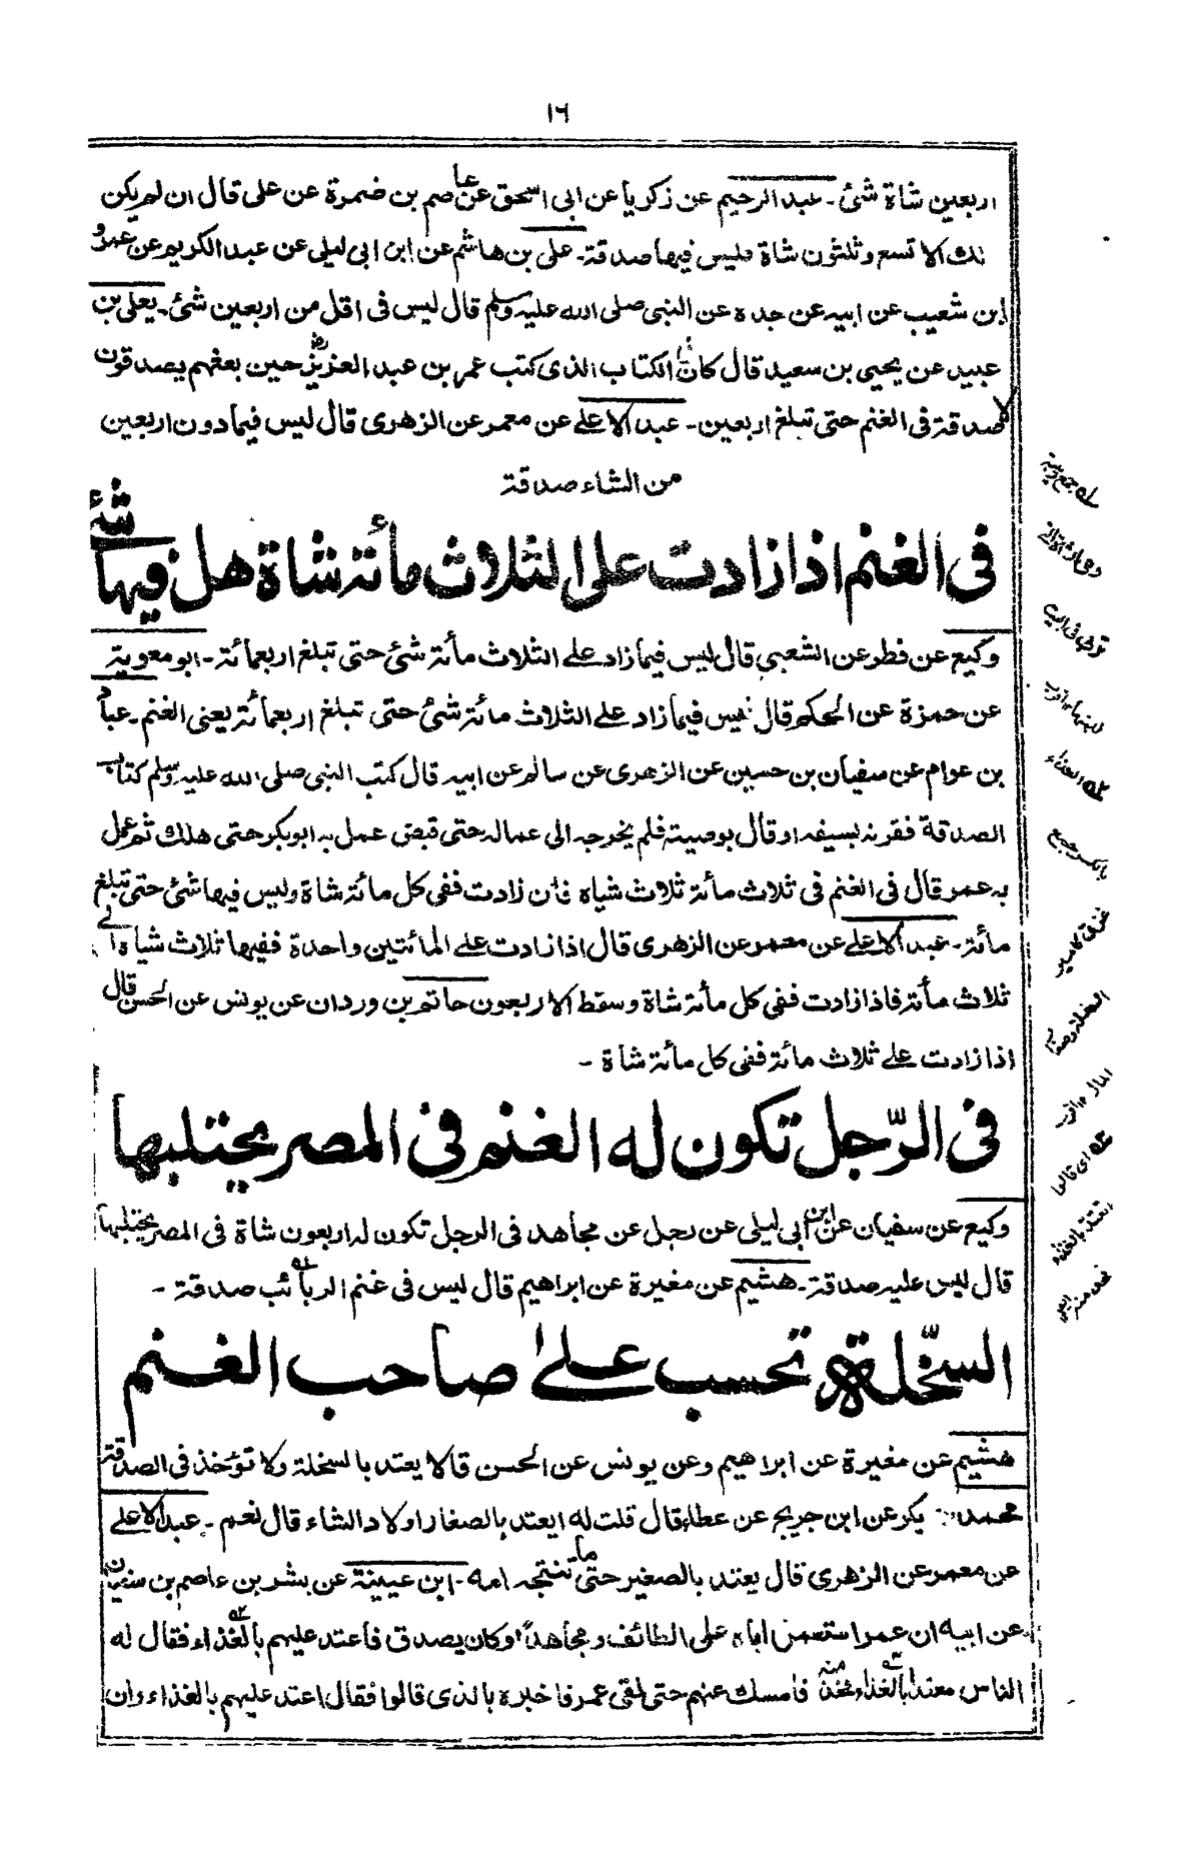 ١٦
اربعين شاة شئ ـ عبد الرحيم عن زكريا عن ابى اسحق عن عاصم بن ضمرة عن على قال ان لم يكن
لك الا تسع وثلثون شاة فليس فيها صدقة ـ على بن هاشم عن ابن ابى ليلى عن عبد الكريم عن عمرو
ابن شعيب عن ابيه عن جده عن النبى صلى الله عليه وسلم قال ليس فى اقل من اربعين شئ ـ يعلى بن
عبيد عن يحيى بن سعيد قال كان الكتاب الذى كتب عمر بن عبد العزيز حين بعثهم يصدقون
لا صدقة فى الغنم حتى تبلغ اربعين ـ عبد الاعلى عن معمر عن الزهرى قال ليس فيما دون اربعين
من الشاء صدقة
فى الغنم اذا زادت على الثلاث مائة شاة هل فيها شئ
وكيع عن فطر عن الشعبى قال ليس فيما زاد على الثلاث مائة شئ حتى تبلغ اربعمائة ـ ابو معوية
عن حمزة عن الحكم قال ليس فيما زاد على الثلاث مائة شئ حتى تبلغ اربعمائة يعنى الغنم ـ عباد
بن عوام عن سفيان بن حسين عن الزهرى عن سالم عن ابيه قال كتب النبى صلى الله عليه وسلم كتاب
الصدقة فقرنه بسيفه او قال بوصيته فلم يخرجه الى عماله حتى قبض عمل به ابو بكر حتى هلك ثم عمل
به عمر قال فى الغنم فى ثلاث مائة ثلاث شياه فان زادت ففى كل مائة شاة وليس فيها شئ حتى تبلغ
مائة ـ عبد الاعلى عن معمر عن الزهرى قال اذا زادت على المائتين واحدة ففيها ثلاث شياه الى
ثلاث مائة فاذا زادت ففى كل مائة شاة وسقط الاربعون حاتم بن وردان عن يونس عن الحسن قال
اذا زادت على ثلاث مائة ففى كل مائة شاة ـ
فى الرّجل تكون له الغنم فى المصر يحتلبها
وكيع عن سفيان عن ابن ابى ليلى عن رجل عن مجاهد فى الرجل تكون له اربعون شاة فى المصر يحتلبها
قال ليس عليه صدقة ـ هشيم عن مغيرة عن ابراهيم قال ليس فى غنم الربائب صدقة ـ
السخّلة تحسب على صاحب الغنم
هشيم عن مغيرة عن ابراهيم وعن يونس عن الحسن قالا يعتد بالسخلة ولا تؤخذ فى الصدقة
محمد بن بكر عن ابن جريج عن عطاء قال قلت له ايعتد بالصغار اولاد الشاء قال نعم ـ عبد الاعلى
عن معمر عن الزهرى قال يعتد بالصغير حتى ما تنتجه امه ـ ابن عيينة عن بشر بن عاصم بن سفيان
عن ابيه ان عمر استعمل اباه على الطائف و مجاهدا وكان يصدق فاعتد عليهم بالغذاء فقال له
الناس معتدا بالغذاء فخذ منه فامسك عنهم حتى لقى عمر فاخبره بالذى قالوا فقال اعتد عليهم بالغذاء وان